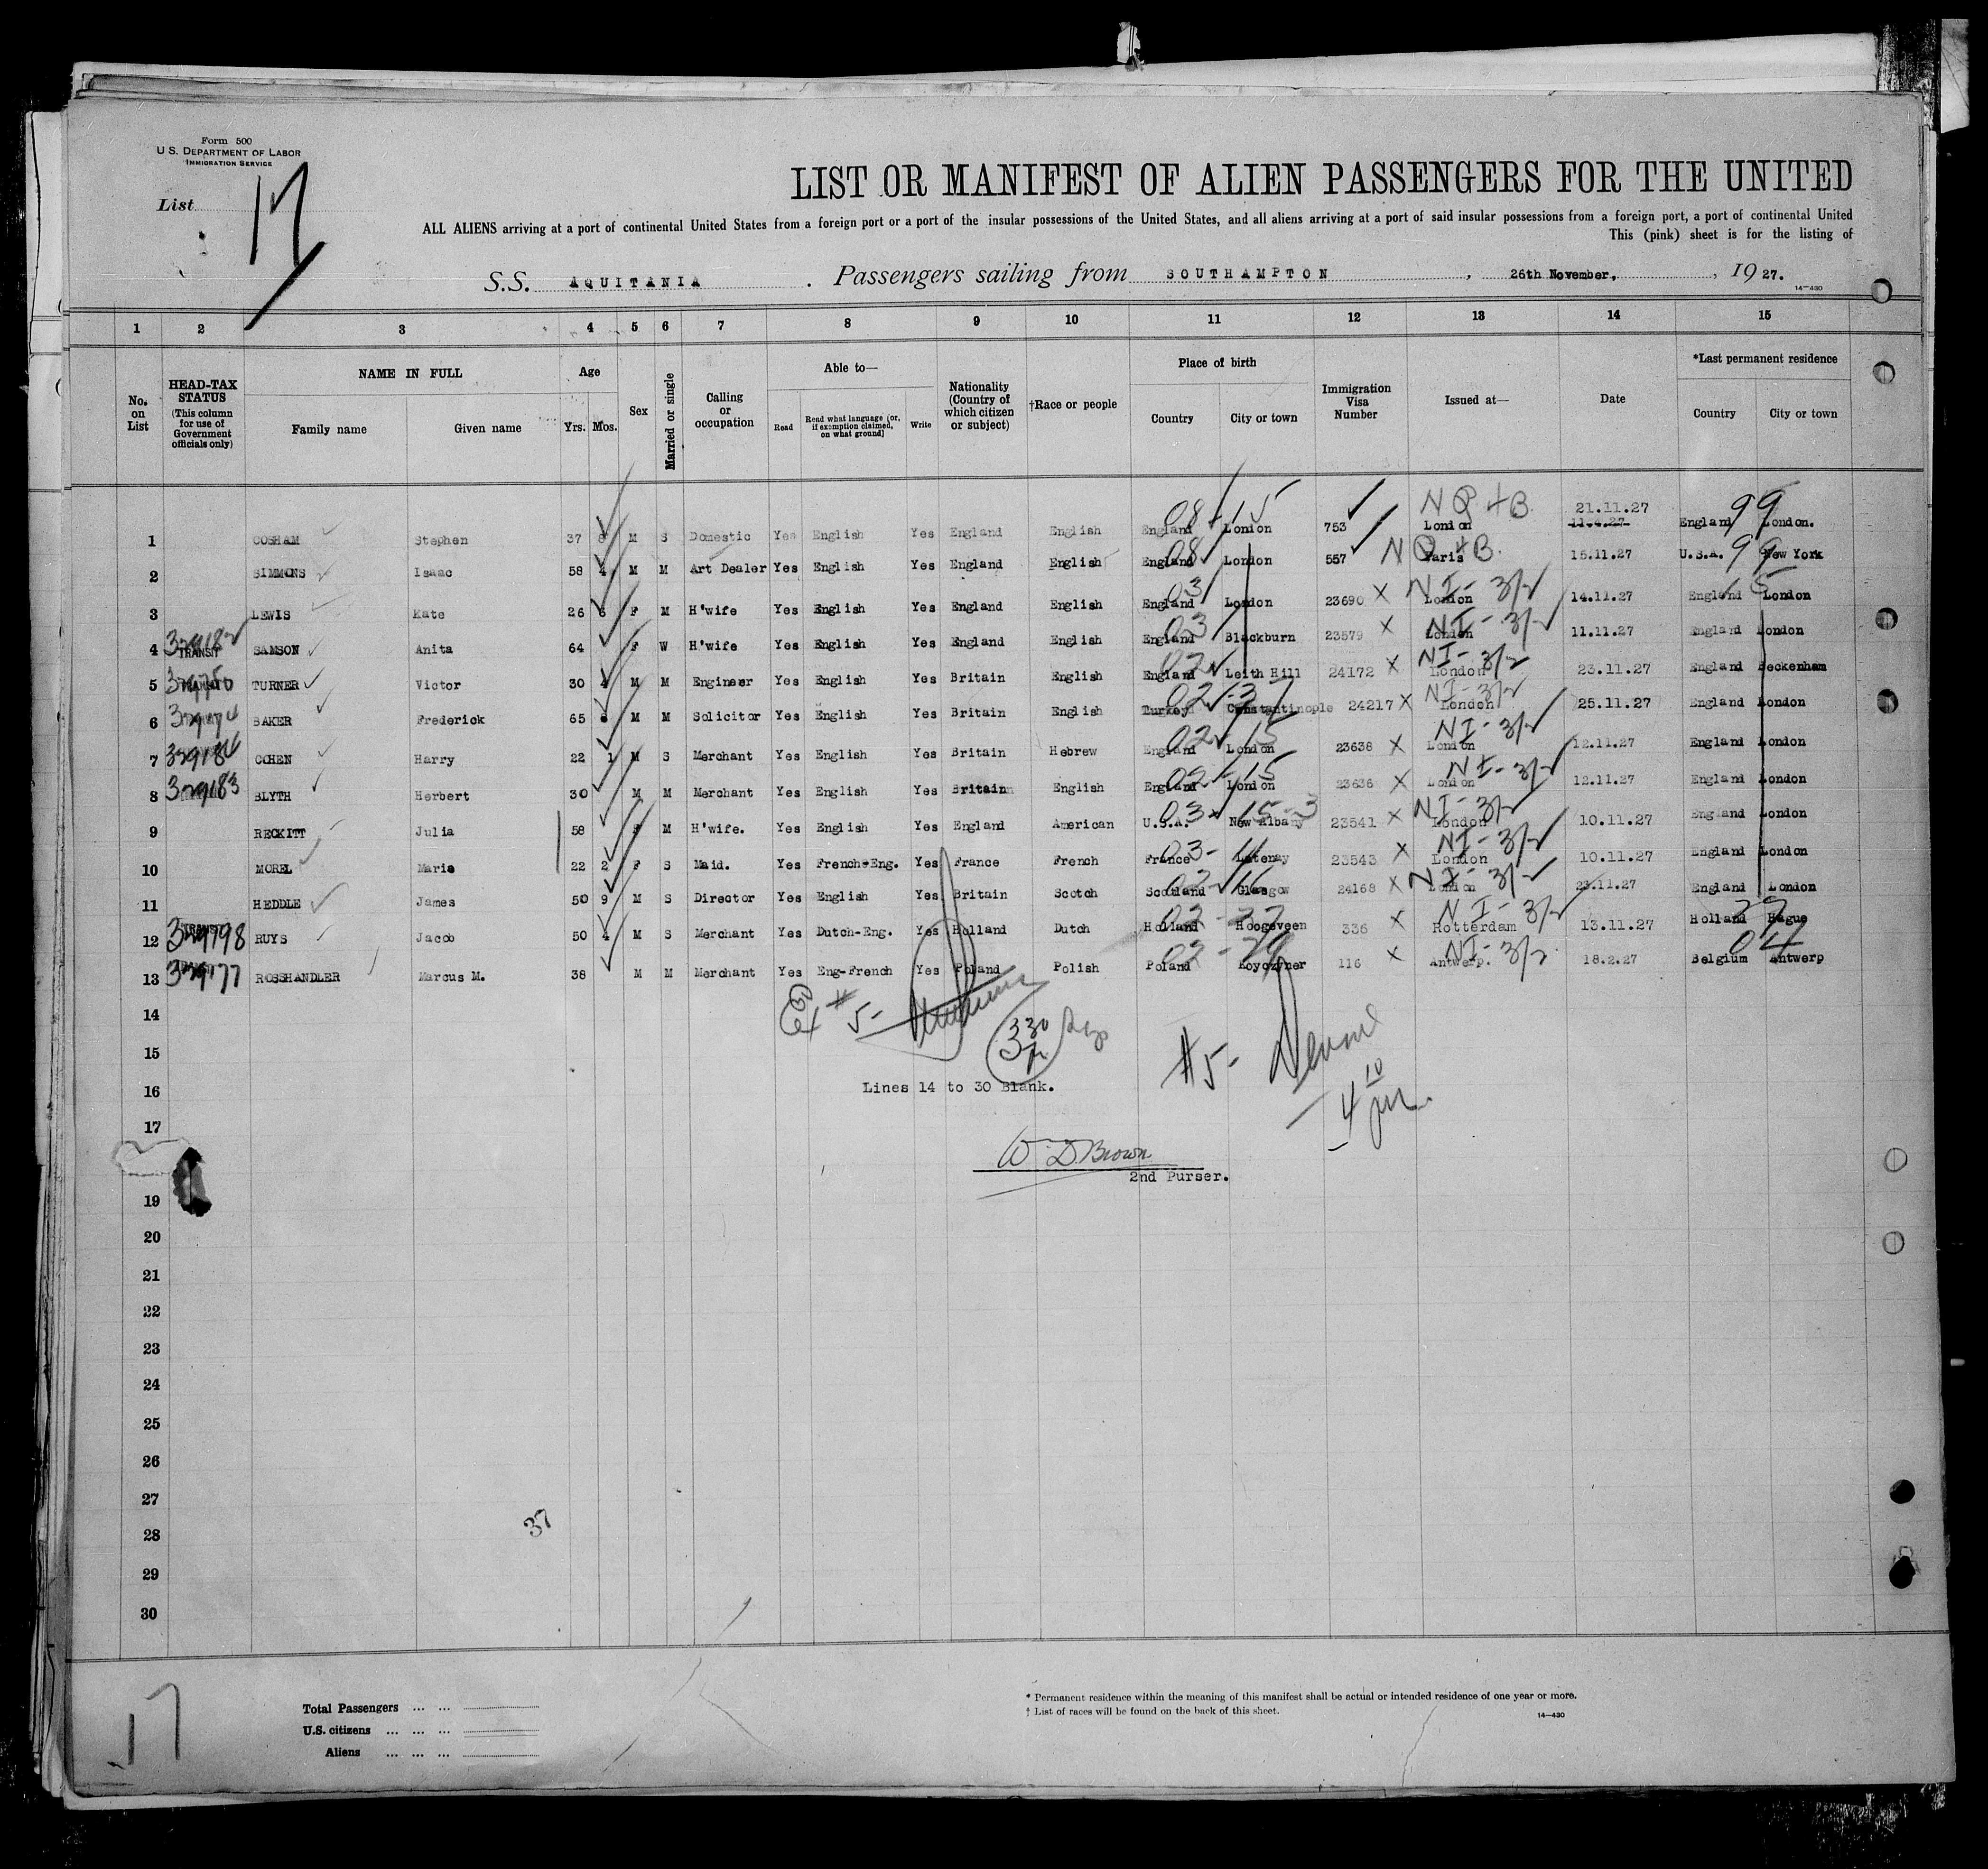 Form 500
U.S. DEPARTMENT OF LABOR
IMMIGRATION SERVICE
List 17
LIST OR MANIFEST OF ALIEN PASSENGERS FOR THE UNITED
ALL ALIENS arriving at a port of continental United States from a foreign port or a port of the insular possessions of the United States, and all aliens arriving at a port of said insular possessions from a foreign port, a port of continental United
This (pink) sheet is for the listing of
S.S. AQUITANIA. Passengers sailing from SOUTHAMPTON, 26th November, 1927.
14—430
1 2 3 4 5 6 7 8 9 10 11 12 13 14 15
No. on List
HEAD-TAX STATUS (This column for use of Government officials only)
NAME IN FULL
Family name Given name
Age
Yrs. Mos.
Sex
Married or single
Calling or occupation
Able to—
Read Read what language [or, if exemption claimed, on what ground] Write
Nationality (Country of which citizen or subject)
†Race or people
Place of birth
Country City or town
Immigration Visa Number
Issued at—
Date
*Last permanent residence
Country City or town
NQ 4B 21.11.27
1 COSHAM Stephen 37 M S Domestic Yes English Yes England English England London 753 London 11.4.27 England London. 08 15 99
2 SIMMONS Isaac 58 4 M M Art Dealer Yes English Yes England English England London 557 Paris 15.11.27 U.S.A. New York 08 NQ 4B 99
3 LEWIS Kate 26 F M H'wife Yes English Yes England English England London 23690 London 14.11.27 England London 03 NI- 3/2
4 TRANSIT SAMSON Anita 64 F W H'wife Yes English Yes England English England Blackburn 23579 London 11.11.27 England London 329182 03 NI- 3/2
5 TURNER Victor 30 4 M M Engineer Yes English Yes Britain English England Leith Hill 24172 London 23.11.27 England Beckenham 02 NI- 3/2
6 BAKER Frederick 65 M M Solicitor Yes English Yes Britain English Turkey Constantinople 24217 London 25.11.27 England London 02 37 NI- 3/2
7 COHEN Harry 22 1 M S Merchant Yes English Yes Britain Hebrew England London 23638 London 12.11.27 England London 329184 02 15 NI- 3/2
8 BLYTH Herbert 30 M M Merchant Yes English Yes Britain English England London 23636 London 12.11.27 England London 329183 02-15 NI- 3/2
9 RECKITT Julia 58 F M H'wife. Yes English Yes England American U.S.A. New Albany 23541 London 10.11.27 England London 03 15-3 NI- 3/2
10 MOREL Marie 22 2 F S Maid. Yes French-Eng. Yes France French France 23543 London 10.11.27 England London 03- NI- 3/2
11 HEDDLE James 50 9 M S Director Yes English Yes Britain Scotch Scotland Glasgow 24168 London 23.11.27 England London 02-16 NI- 3/2
12 TRANSIT RUYS Jacob 50 4 M S Merchant Yes Dutch-Eng. Yes Holland Dutch Holland Hoogeveen 336 Rotterdam 13.11.27 Holland Hague 02-27 NI- 3/2
13 ROSSHANDLER Marcus M. 38 M M Merchant Yes Eng-French Yes Poland Polish Poland 116 Antwerp. 18.2.27 Belgium Antwerp 329177 02-29 NI- 3/2 04
14
#5-
15
330
#5-
16
Lines 14 to 30 Blank.
17
W D Brown
2nd Purser.
19
20
21
22
23
24
25
26
27
37
28
29
30
17
Total Passengers ... ...
U.S. citizens ... ... ...
Aliens ... ... ...
* Permanent residence within the meaning of this manifest shall be actual or intended residence of one year or more.
† List of races will be found on the back of this sheet.
14—430